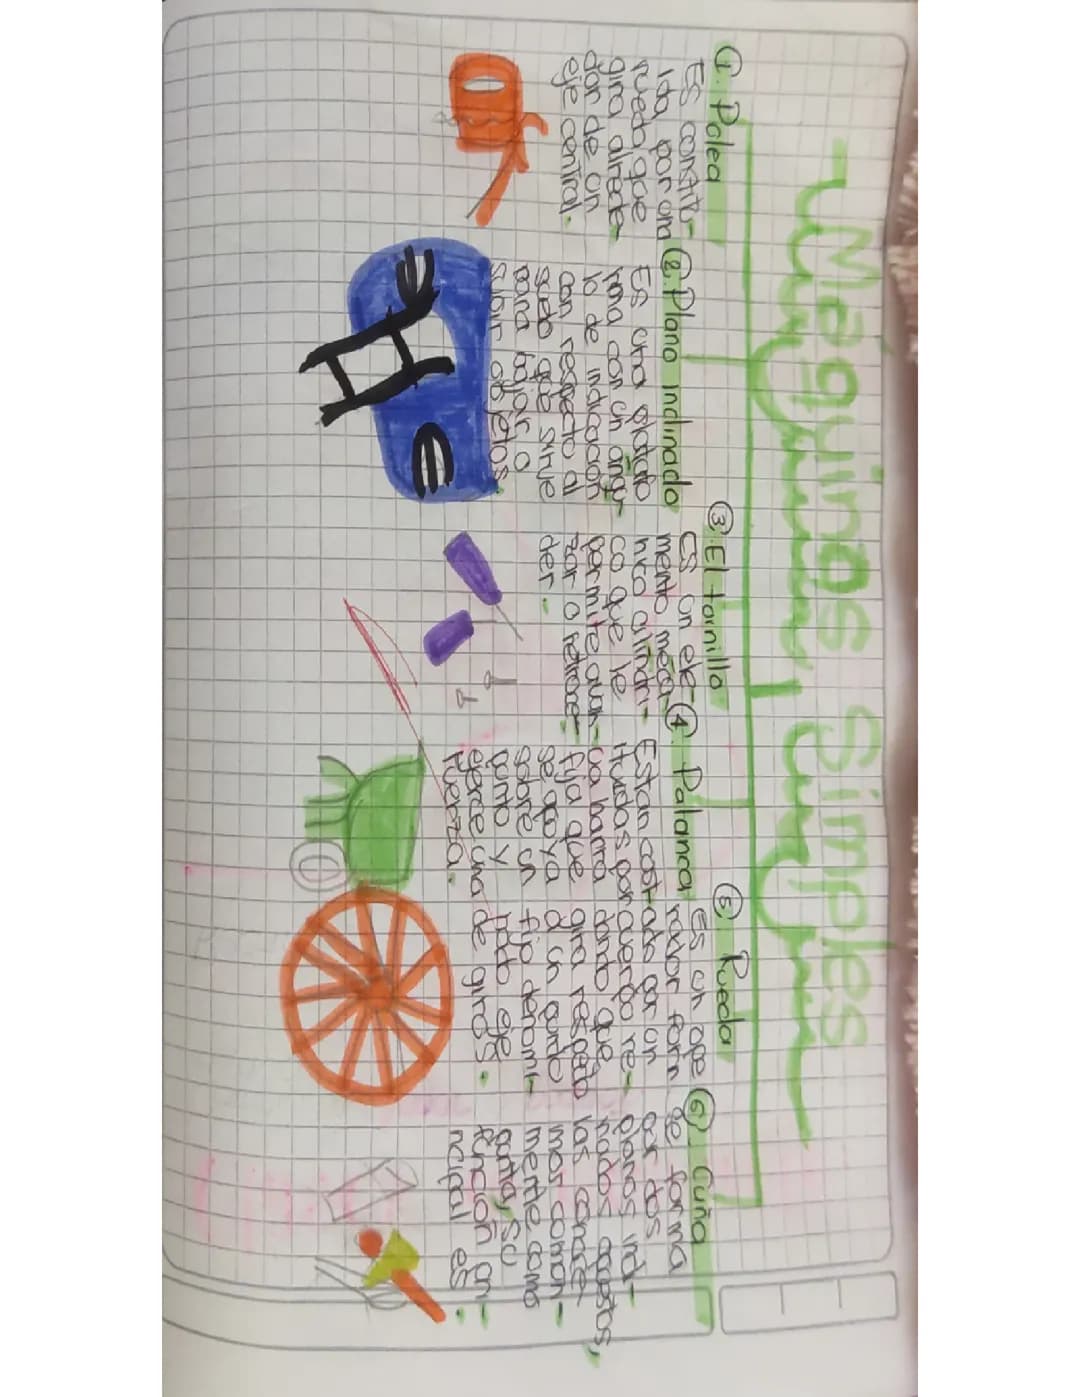 Maquinas Simples
1. Polea
Es constitu-
ida por una
rueda que
gira alrede-
dor de un
eje central.
2. Plano inclinado
Es una plata fo
rma con un angu-
lo de inclicación
con respecto al
suelo que sirve
para bajar o
subir objetos.
3. El tornillo
Es un ele-
mento meca-
nico cilindri-
co que le
permite avan-
zar o retroce-
der.
4. Palanca
Estan const-
ituidas por
ua barra
fija que
se apoya
sobre un
punto y
ejerce una
fuerza.
5. Rueda
Es un ope
rador form
ado por un
cuerpo re-
dondo que
gira respecto
a un punto
fijo denomi-
nado eje
de giros.
6. Cuña
Se forma
por dos
planos incl-
inados opuestos,
las conoce-
mos común-
mente como
punta, su
función pri-
ncipal es